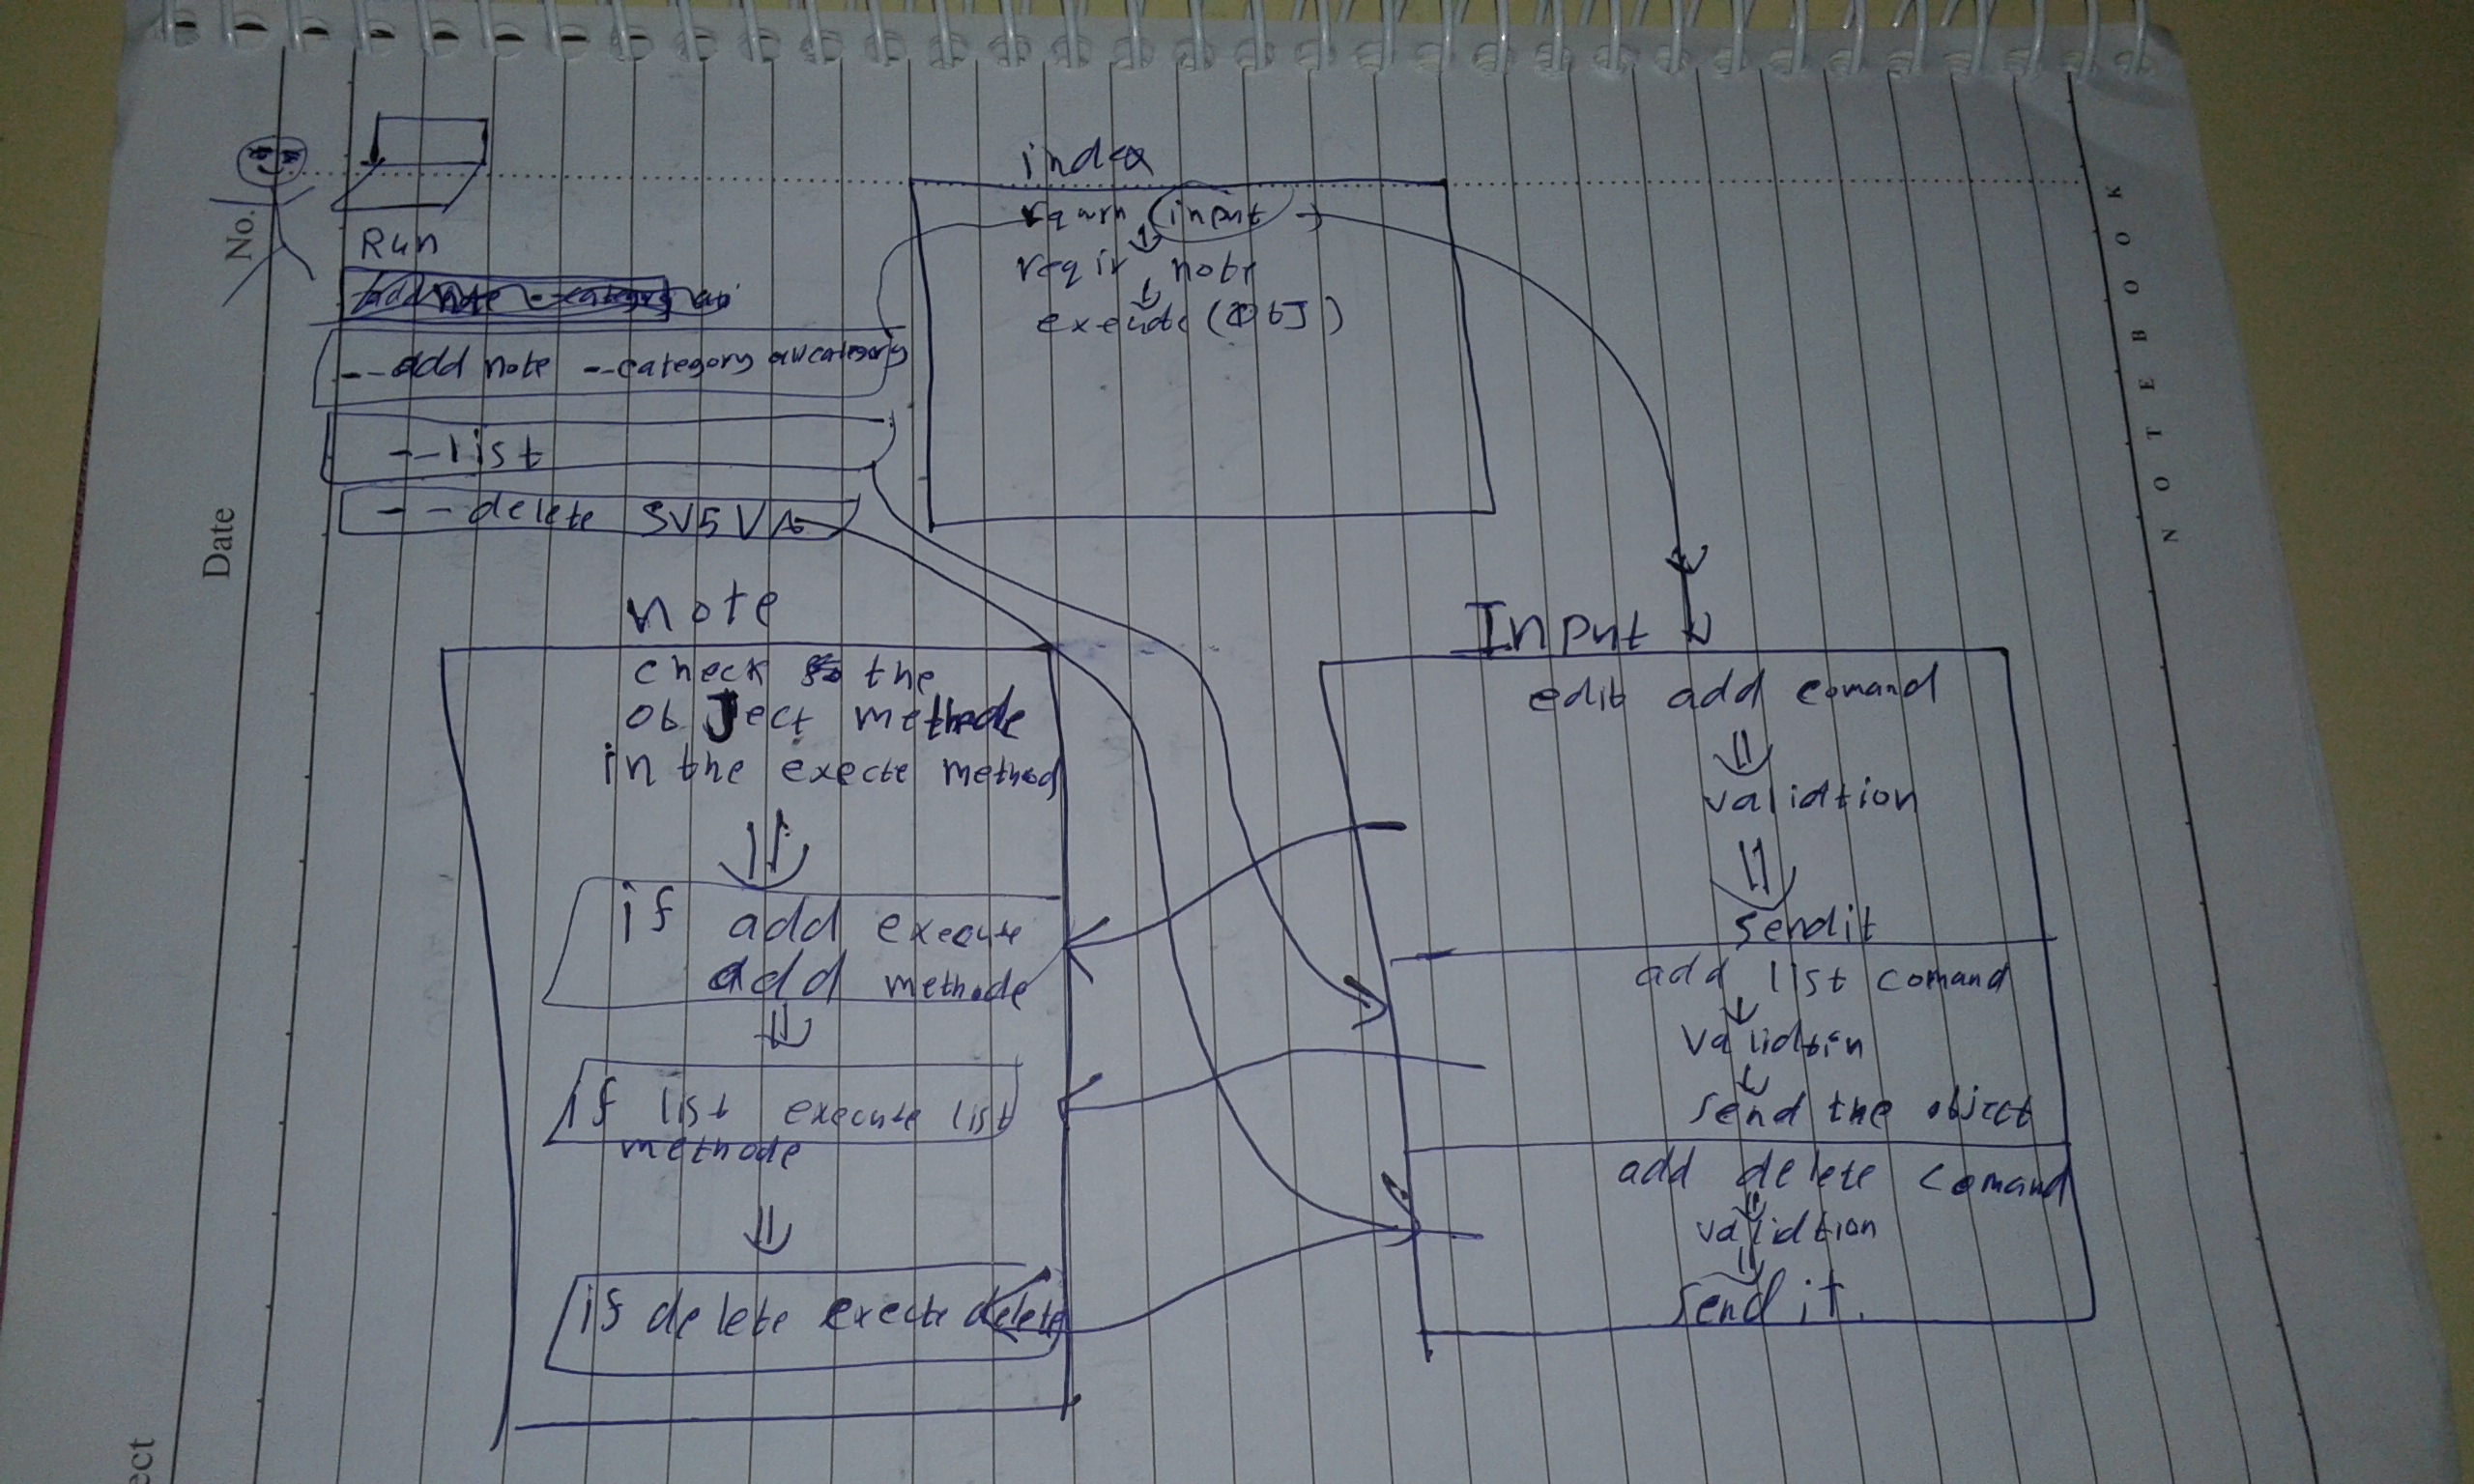 No.
Date
ect
NOTEBOOK
Run
--add note --category
--list
--delete SV5VA
index
input
reqir note
execute (ObJ)
note
check the
obJect methode
in the execte method
if add execute
add methode
if list execute list
methode
if delete execte delete
Input
edit add comand
validtion
sendit
add list comand
validtoin
send the object
add delete comand
validtion
send it.